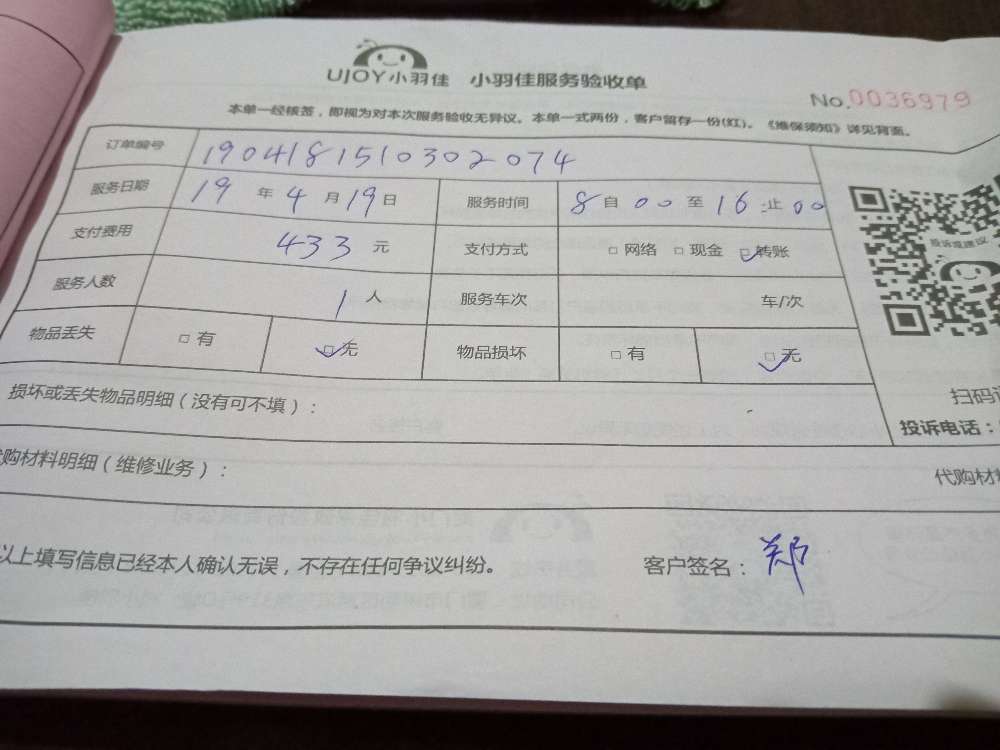 UJOY小羽佳 小羽佳服务验收单
No.0036979
本单一经核签，即视为对本次服务验收无异议。本单一式两份，客户留存一份(红)。《维保须知》详见背面。
订单编号 1904181510302074
服务日期 19 年 4 月 19 日 服务时间 8 自 00 至 16 止 00
投诉或建议
支付费用 433 元 支付方式 □ 网络 □ 现金 ☑ 转账
服务人数 1 人 服务车次 车/次
物品丢失 □ 有 ☑ 无 物品损坏 □ 有 ☑ 无
损坏或丢失物品明细（没有可不填）：
扫码
投诉电话：
购材料明细（维修业务）：
代购材
以上填写信息已经本人确认无误，不存在任何争议纠纷。 客户签名： 郑